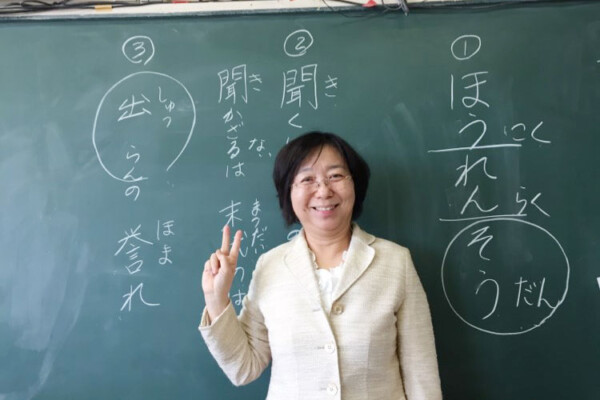 ①
ほうこく
れんらく
そうだん
②
聞く
き
聞かざるは 末
き まつだい
③
出らんの 誉れ
しゅつ ほま